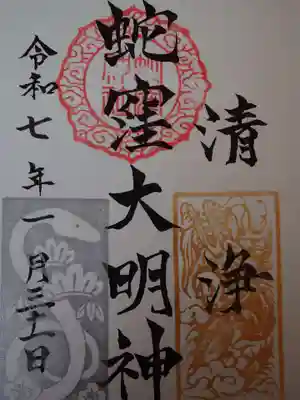 清浄
蛇窪大明神
令和七年一月三十一日